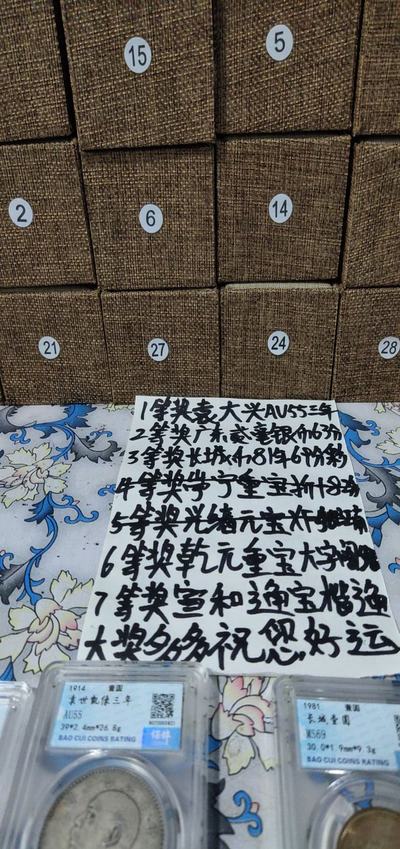 15
5
2
6
14
21
27
24
28
1等奖袁大头AU55三年
2等奖广东贰毫银价63分
3等奖长城币81年69分
4等奖
5等奖光绪元宝
6等奖乾元重宝大字
7等奖宣和通宝楷通
大奖多多祝您好运
1914 壹圆
袁世凯像三年
AU55
39*2.4mm*26.8g
BAO CUI COINS RATING
保粹
1981 壹圆
长城壹圆
MS69
30.0*1.9mm*9.3g
BAO CUI COINS RATING